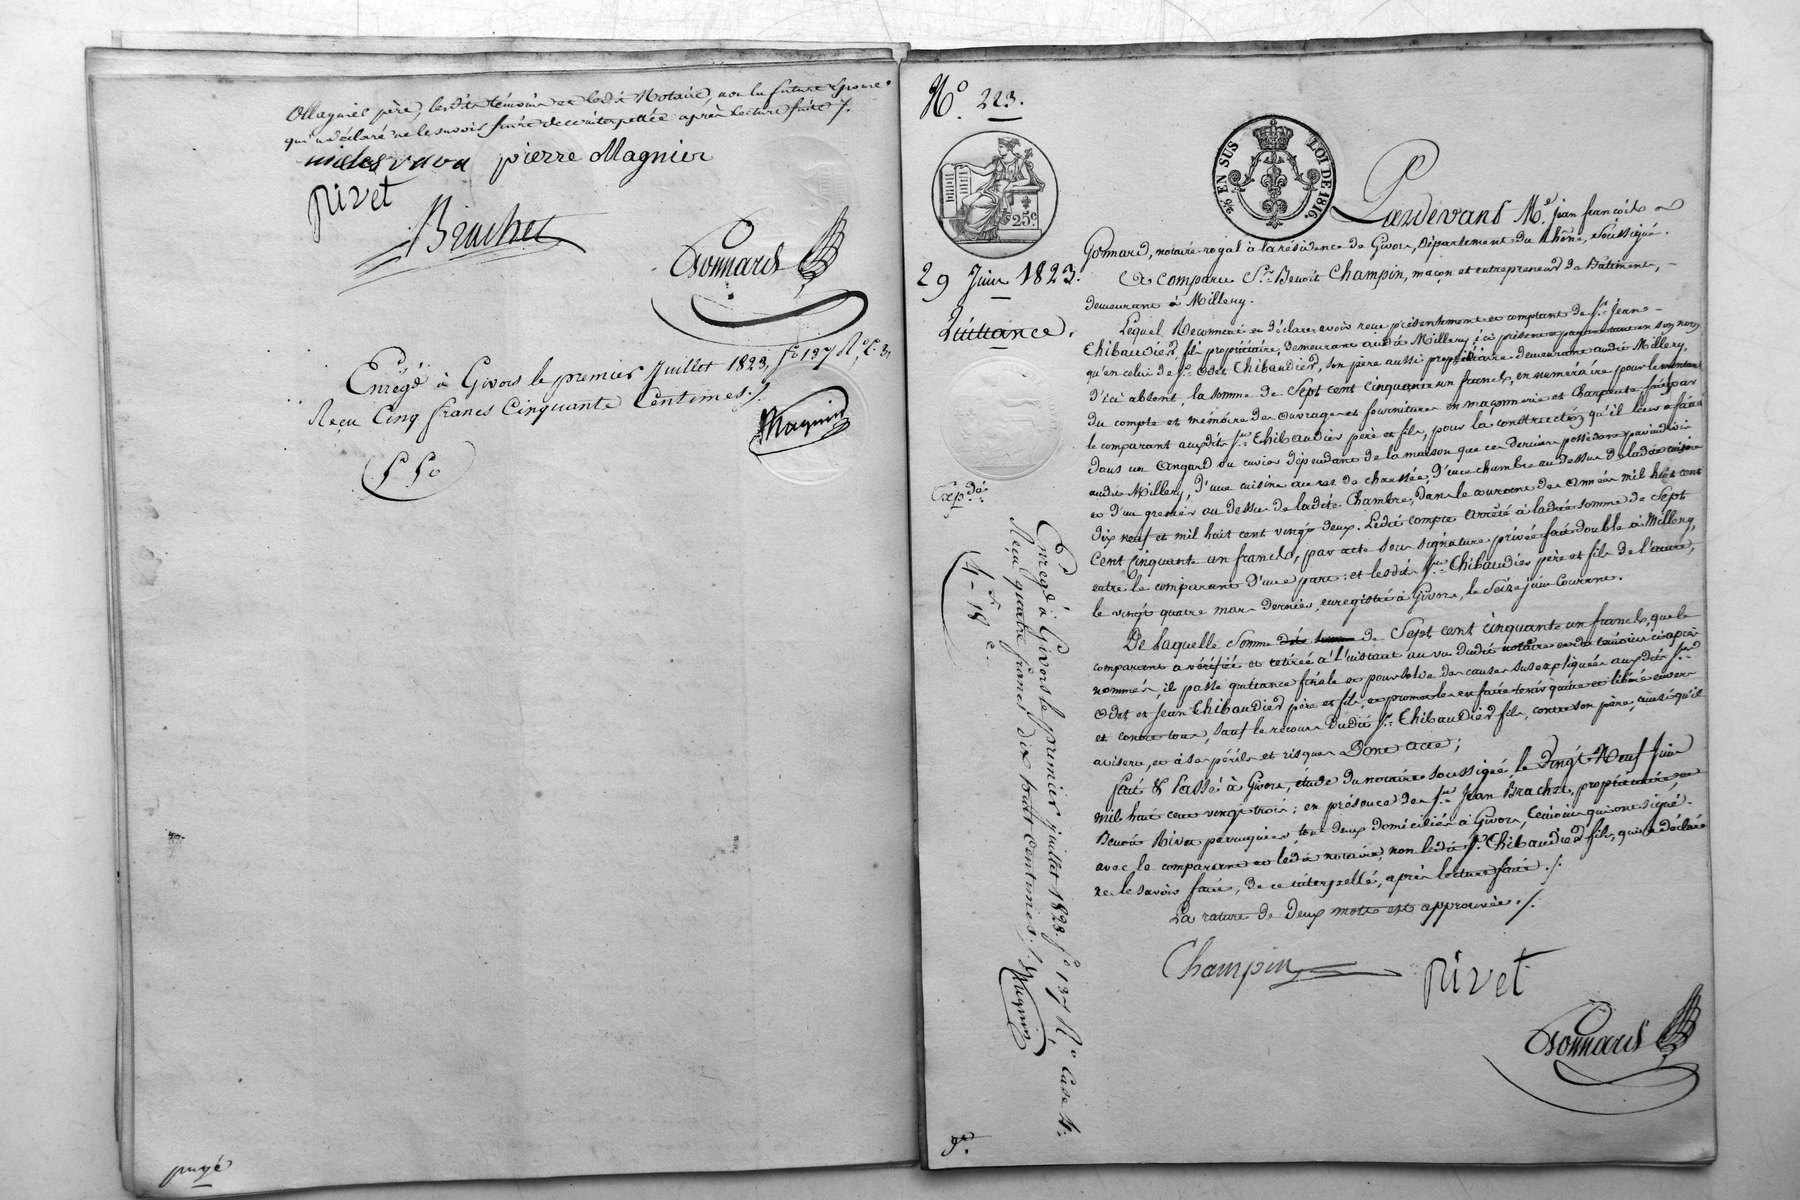 Magnier père, lesdits témoins et ledit Notaire, non la future Epouse
qui a déclaré ne le savoir faire de ce interpellée après lecture faite ./.
pierre Magnier
Rivet
Brachet
Gonnard
Enregé à Givors le premier Juillet 1823, fo 137 Ro C. 3,
Reçu Cinq francs Cinquante Centimes ./.
Magnin
5f 50
payé
No. 223.
25c
EN SUS
LOI DE 1816.
29 Juin 1823.
Quittance.
Expdé
Pardevant Me. jean françois
Gonnard, notaire royal à la résidence de Givors, Département du Rhône, soussigné.
Et comparu Sr. Benoit Champin, maçon et entrepreneur de Bâtiments,
demeurant à Millery.
Lequel Reconnait et déclare avoir reçu présentement et comptant de Sr. Jean
Chibaudier fils propriétaire, demeurant audit Millery ici présent et payant tant en son nom
qu'en celui de Sr. Odet Chibaudier, son père aussi propriétaire demeurant audit Millery,
d'ici absent, la somme de Sept cent cinquante un francs, en numéraire pour le montant
du compte et mémoire des ouvrages et fournitures en maçonnerie et charpente, faits par
le comparant auxdits Srs. Chibaudier père et fils, pour la construction qu'il leur a fait
dans un Angard ou cuvier dépendant de la maison que ce dernier possède par indivis
audit Millery, d'une cuisine au rez de chaussée, d'une chambre au dessus de ladite cuisine
et d'un grenier au dessus de ladite Chambre, dans le courant des Années mil huit cent
dix neuf et mil huit cent vingt deux. Ledit compte arrêté à ladite somme de Sept
Cent cinquante un francs, par acte sous signature privée fait double à Millery,
entre le comparant d'une part; et lesdits Srs. Chibaudier père et fils de l'autre,
le vingt quatre mars dernier, enregistré à Givors, le Seize juin Courant.
De laquelle somme de Sept cent cinquante un francs, que le
comparant a vérifiée et retirée à l'instant au vu dudit notaire et des témoins ci après
nommés, il passe quittance finale et pour solde des causes susexpliquées auxdits Srs.
Odet et Jean Chibaudier père et fils, et promet les en faire tenir quitte et libéré envers
et contre tous, sauf le recours dudit Sr. Chibaudier fils, contre son père, ainsi qu'il
avisera, et à ses périls et risques Dont acte;
Fait & Passé à Givors, étude du notaire soussigné, le vingt Neuf Juin
mil huit cent vingt trois; en présence des Srs. Jean Brachet, propriétaire, et
Benoit Rivet perruquier, tous deux domiciliés à Givors, témoins qui ont signé
avec le comparant et ledit notaire, non ledit Sr. Chibaudier fils, qui a déclaré
ne le savoir faire, de ce interpellé, après lecture faite ./.
La rature de deux mots est approuvée ./.
Champin
Rivet
Gonnard
Enregé à Givors le premier juillet 1823. fo 137 Ro Case 4.
Reçu quatre francs dix huit centimes ./. Magnin
4f - 18c.